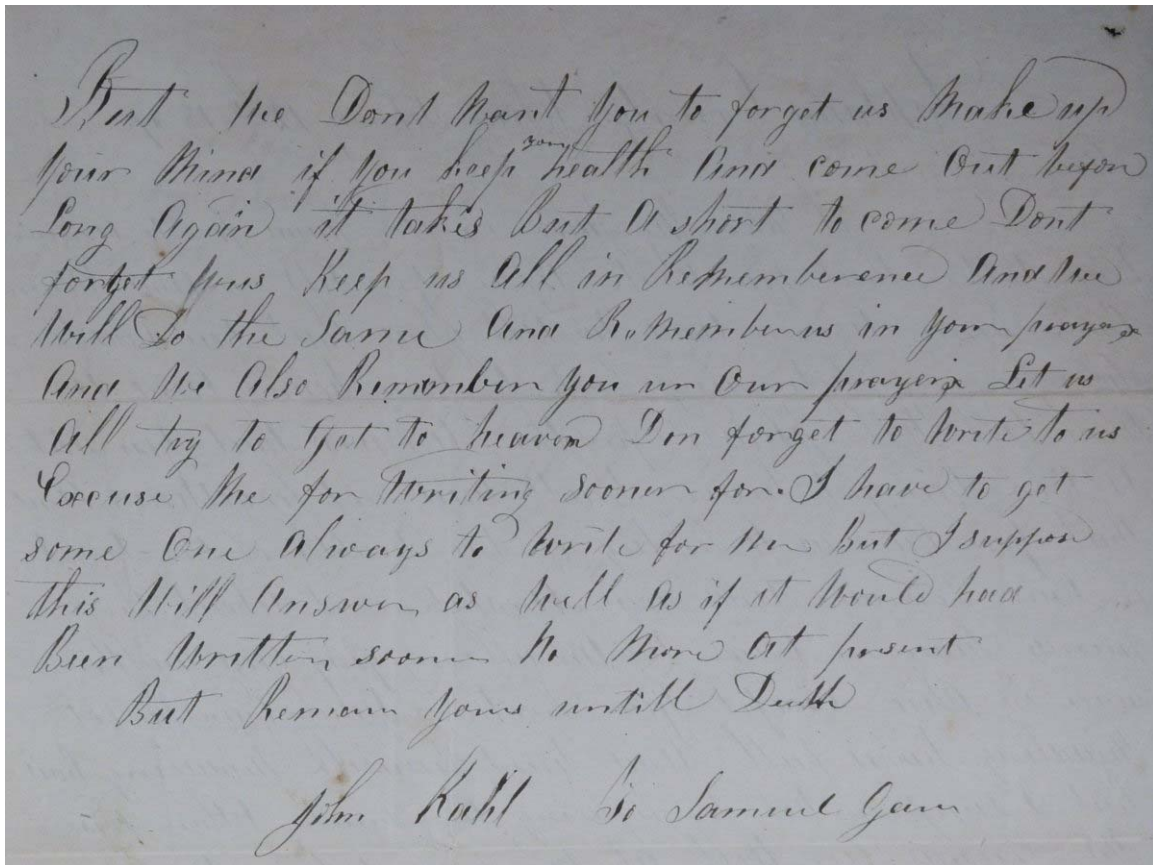 But We Dont Want You to forget us Make up
your Mind if you keep your health And come Out before
Long Again it takes But A short to come Dont
forget us Keep us All in Rememberence And We
Will Do the Same And Remember us in your prayers
And We Also Remember you in Our prayers Let us
All try to Get to heaven Don forget to Write to us
Excuse Me for Writing sooner for I have to get
some One Always to Write for Me But I suppose
this Will Answer as Well As if it Would had
Been Written sooner No More At present
But Remain yours untill Death
John Kahl To Samuel